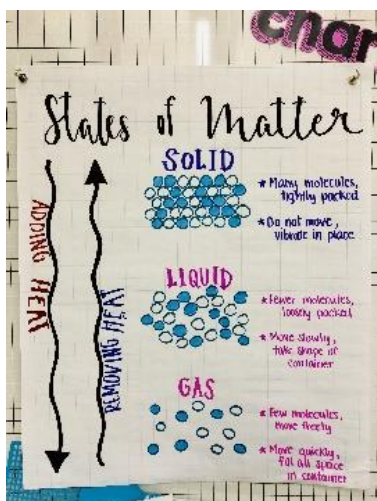 char
States of Matter
ADDING HEAT
REMOVING HEAT
SOLID
* Many molecules,
tightly packed
* Do not move,
vibrate in place
LIQUID
* Fewer molecules,
loosely packed
* Move slowly,
take shape of
container
GAS
* Few molecules,
move freely
* Move quickly,
fill all space
in container